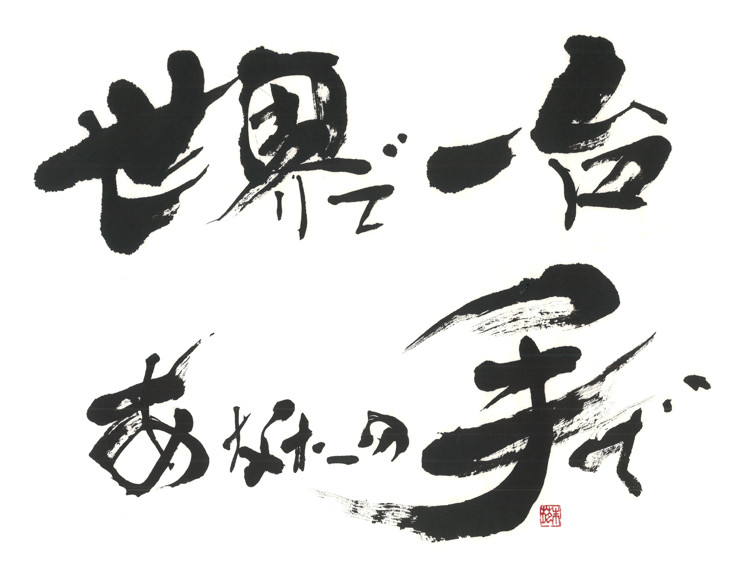 世界で一台
あなたの手で